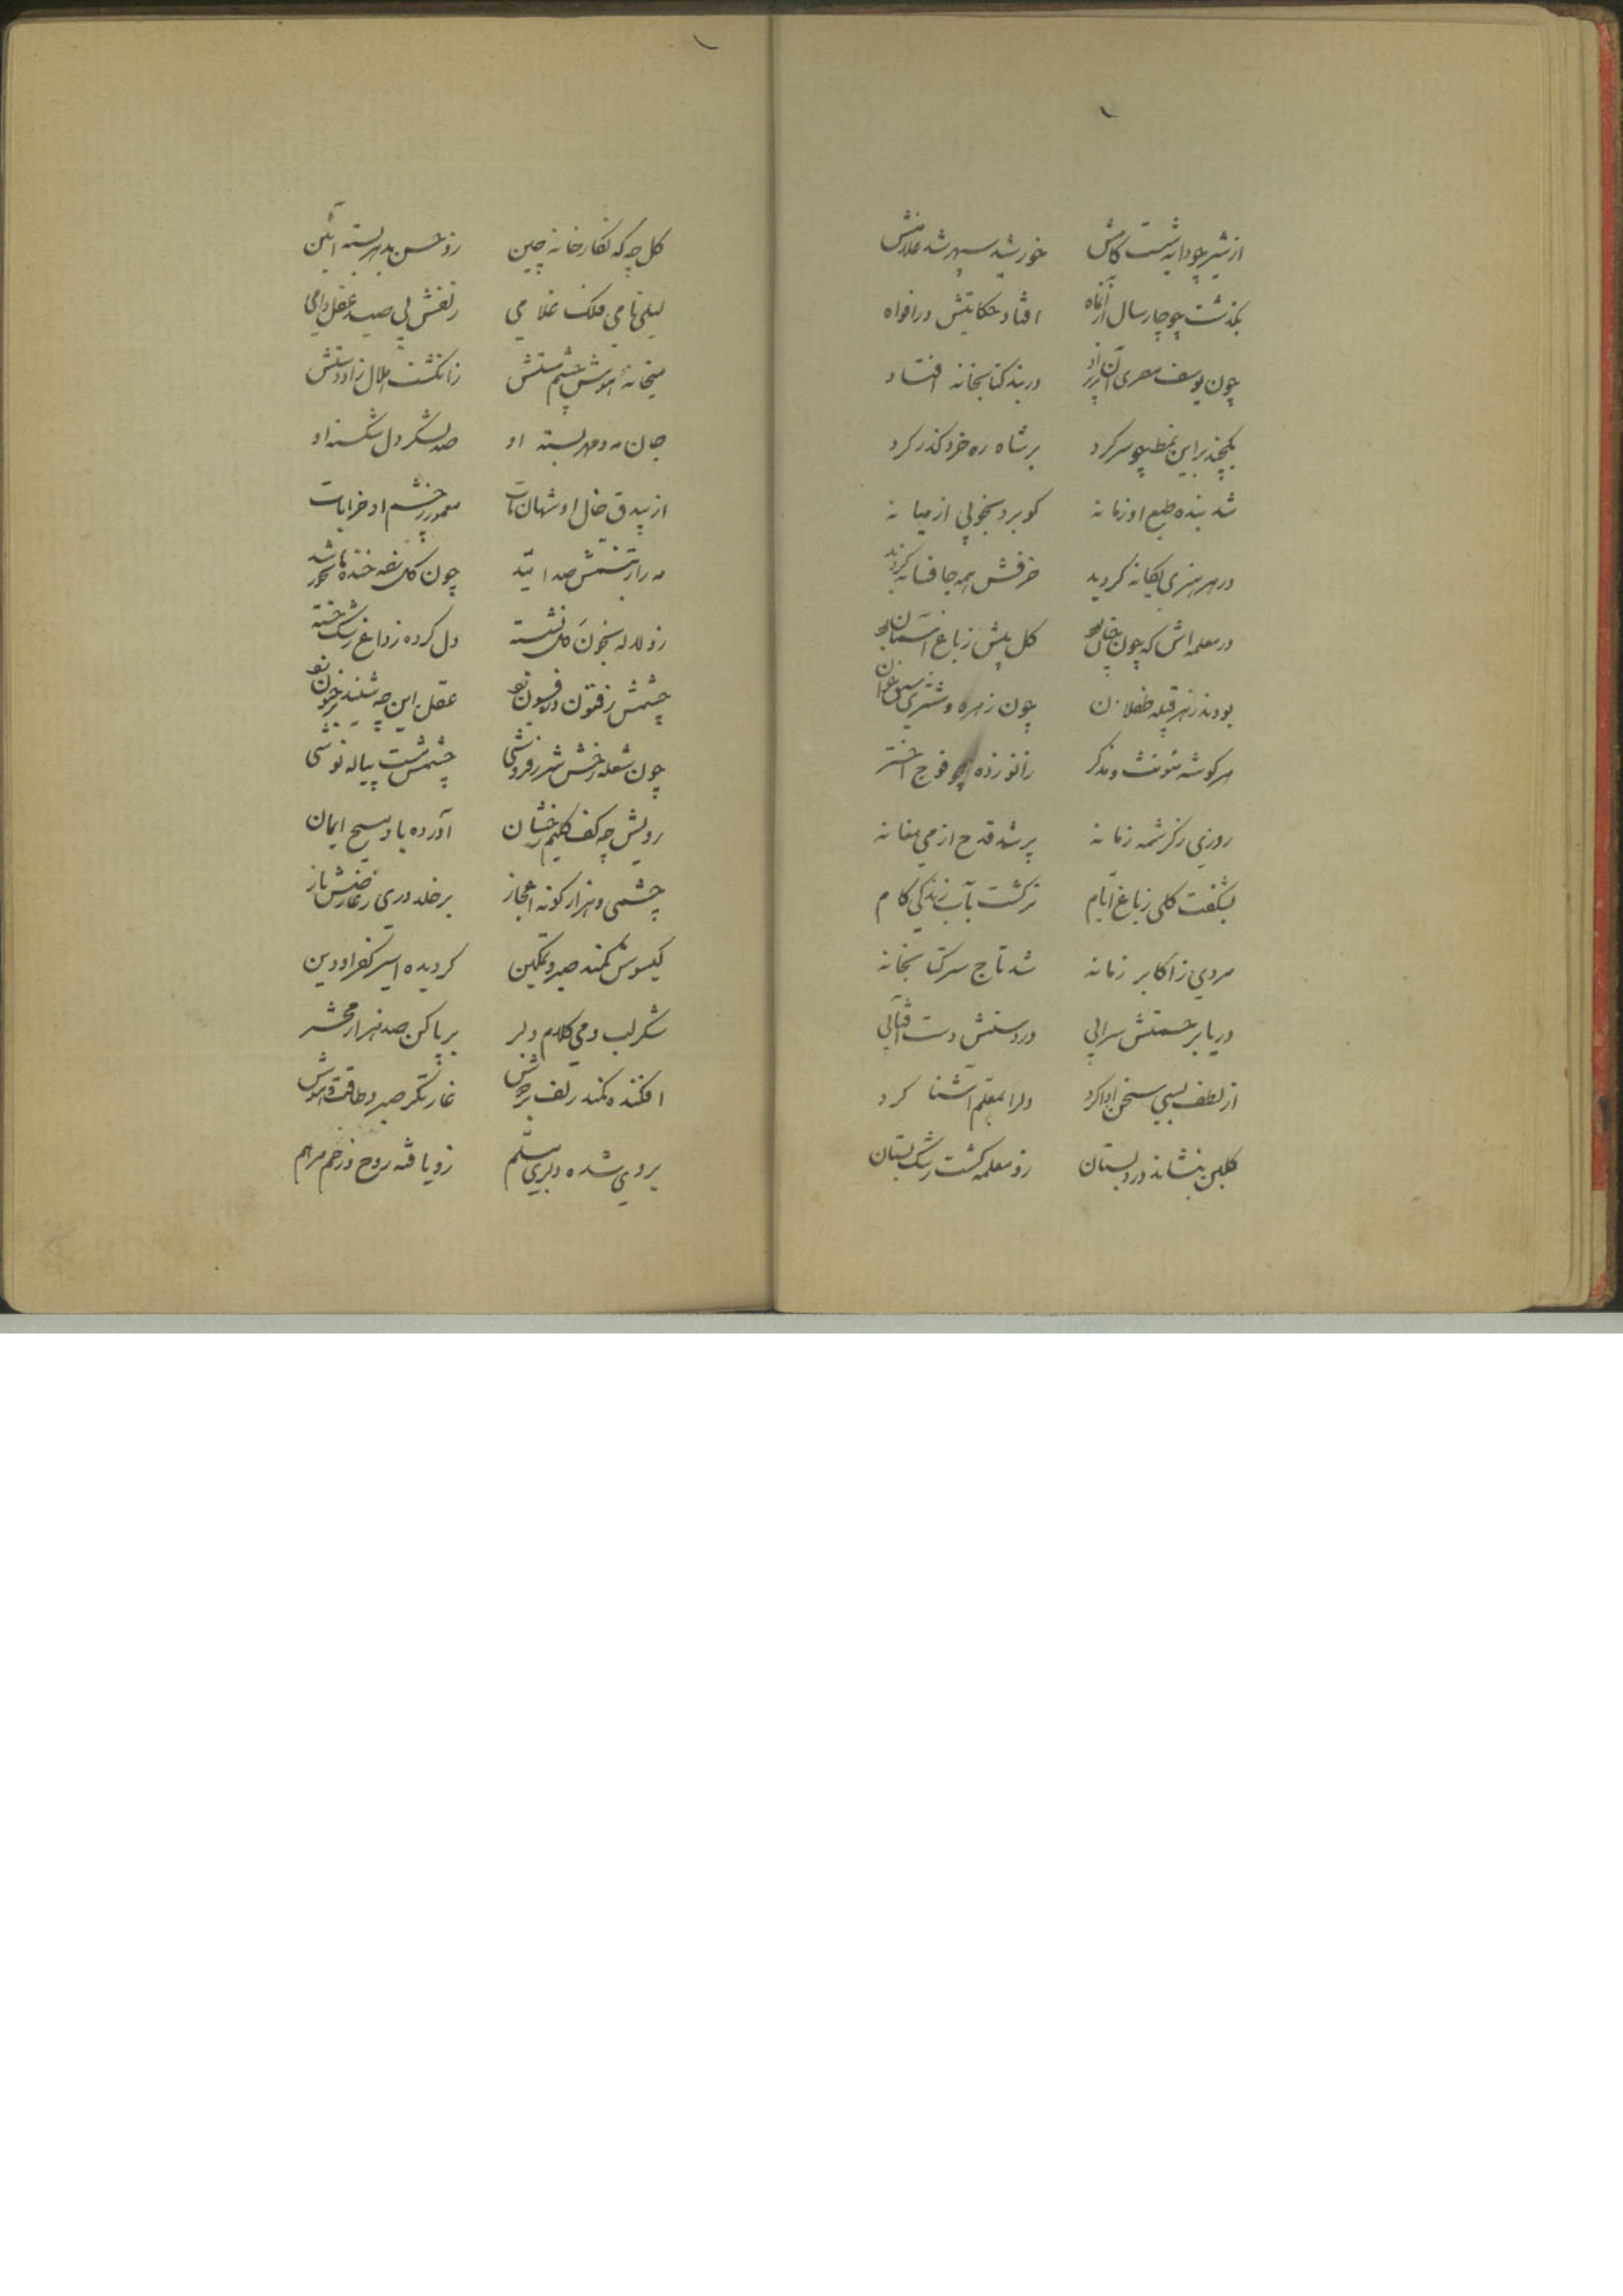 از شیر چو دایه شست کامش خورشید سپهر شد غلامش
بگذشت چو چار سال از آنماه افتاد حکایتش در افواه
چون یوسف مصری آن پریزاد در بند کتابخانه افتاد
یکچند بر این نمط چو سر کرد بر شاه ره خرد گذر کرد
شد بنده طبع او زمانه کو برد بخوبی از میانه
در هر هنری یگانه گردید حرفش همه جا فسانه گردید
در معلمه اش که چون جنان بود گل پیش ز باغ آسمان بود
بودند ز هر قبیله طفلان چون زهره و مشتری سبق خوان
هر گوشه مؤنث و مذکر زانو زده چو فوج اختر
روزی ز کرشمه زمانه پر شد قدح از می مغانه
بشگفت گلی ز باغ ایام تر گشت بآب زندگی کام
مردی ز اکابر زمانه شد تاج سر کتابخانه
دریا بر حشمتش سرابی در دستش دست آفتابی
از لطف بسی سخن ادا کرد دلرا بمعلم آشنا کرد
گلبن بنشاند در دبستان زو معلمه گشت رشک بستان
گل چه که نگارخانه چین زو حسن بدهر بسته آئین
لیلی نامی فلک غلامی زلفش پی صید عقل دامی
میخانهٔ هوش چشم مستش زانگشت هلال زاد دستش
جان مه و مهر بسته او صد لشکر دل شکسته او
از بیدق خال او شهان مات معمور ز چشم او خرابات
مه را ز تبسمش صد امید چون گل نفس خنده باشد
زو لاله بخون دل نشسته دل کرده ز داغ رشک خسته
چشمش ز فتون در فسون بود عقل این چه شنید در جنون بود
چون شعله رخش شرر فروشی چشمش مست پیاله نوشی
رویش چه کف کلیم رخشان آورده باو مسیح ایمان
چشمی و هزار گونه اعجاز بر خلد دری ز عارضش باز
گیسوش کمند صبر و تمکین گردیده اسیر کفر او دین
شکر لب و می کلام و دلبر بر پا کن صد هزار محشر
افکنده کمند زلف بر دوش غارتگر صبر و طاقت و هوش
بر وی شده دلبری مسلم زو یافته روح و زخم مرهم